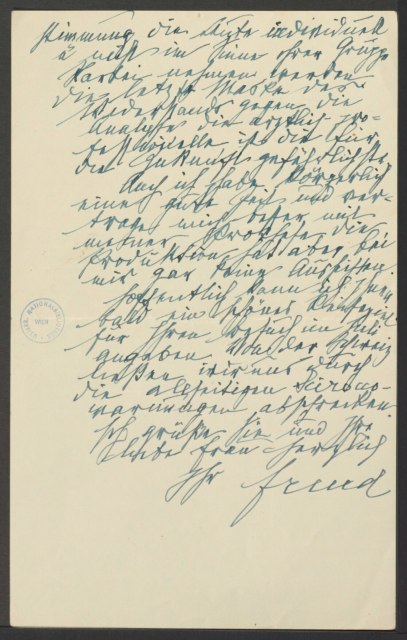 Stimmung, die Ärzte individuell
u nicht im Sinne ihrer Gruppe
Partei nehmen werden
die letzte Maske des
Widerstands gegen die
Analyse, die ärztlich pro-
fessionelle ist die für
die Zukunft gefährlichste.
Auch ich habe körperlich
eine gute Zeit und ver-
trage mich besser mit
meiner Prothese, die
Produktion hat aber bei
mir gar keine Aussichten.
Hoffentlich kann ich Ihnen
bald ein schönes
für Ihren Besuch im Juli
angeben. Von der Schweiz
ließen wir uns durch
die allseitigen
warnungen abschrecken.
Ich grüße Sie und Ihre
liebe Frau herzlich
Ihr Freud
WIEN